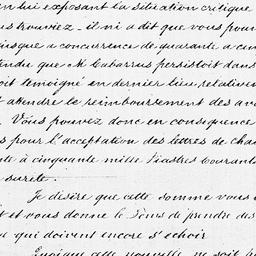 en lui exposant la situation critique
us trouviez - il m'a dit que vous pour
jusque a concurrence de quarante a cin
endu que M Cabarrus persistoit dans
oit temoigné en dernier lieu relativem
t atendre le reimboursement des av
Vous pouvez donc en consequence
s pour l'acceptation des lettres de cha
nte à cinquante mille Piastres Courants
sureté.
Je désire que cette somme vous
t et vous donne le tems de prendre des
u qui doivent encore s'echoir
Quoique cette nouvelle ne soit p